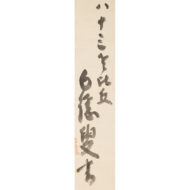 八十三老比丘白隱叟書